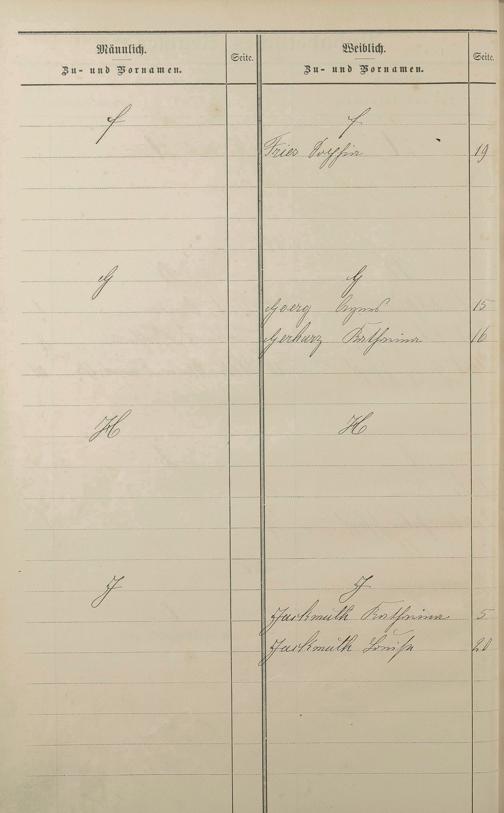 Männlich.
Zu- und Vornamen.
Seite.
Weiblich.
Zu- und Vornamen.
Seite.
F
F
Frier Sophia 19
G
G
Goerg Agnes 15
Gerharz Katharina 16
H
H
J
J
Jackmuth Katharina 5
Jackmuth Louise 20